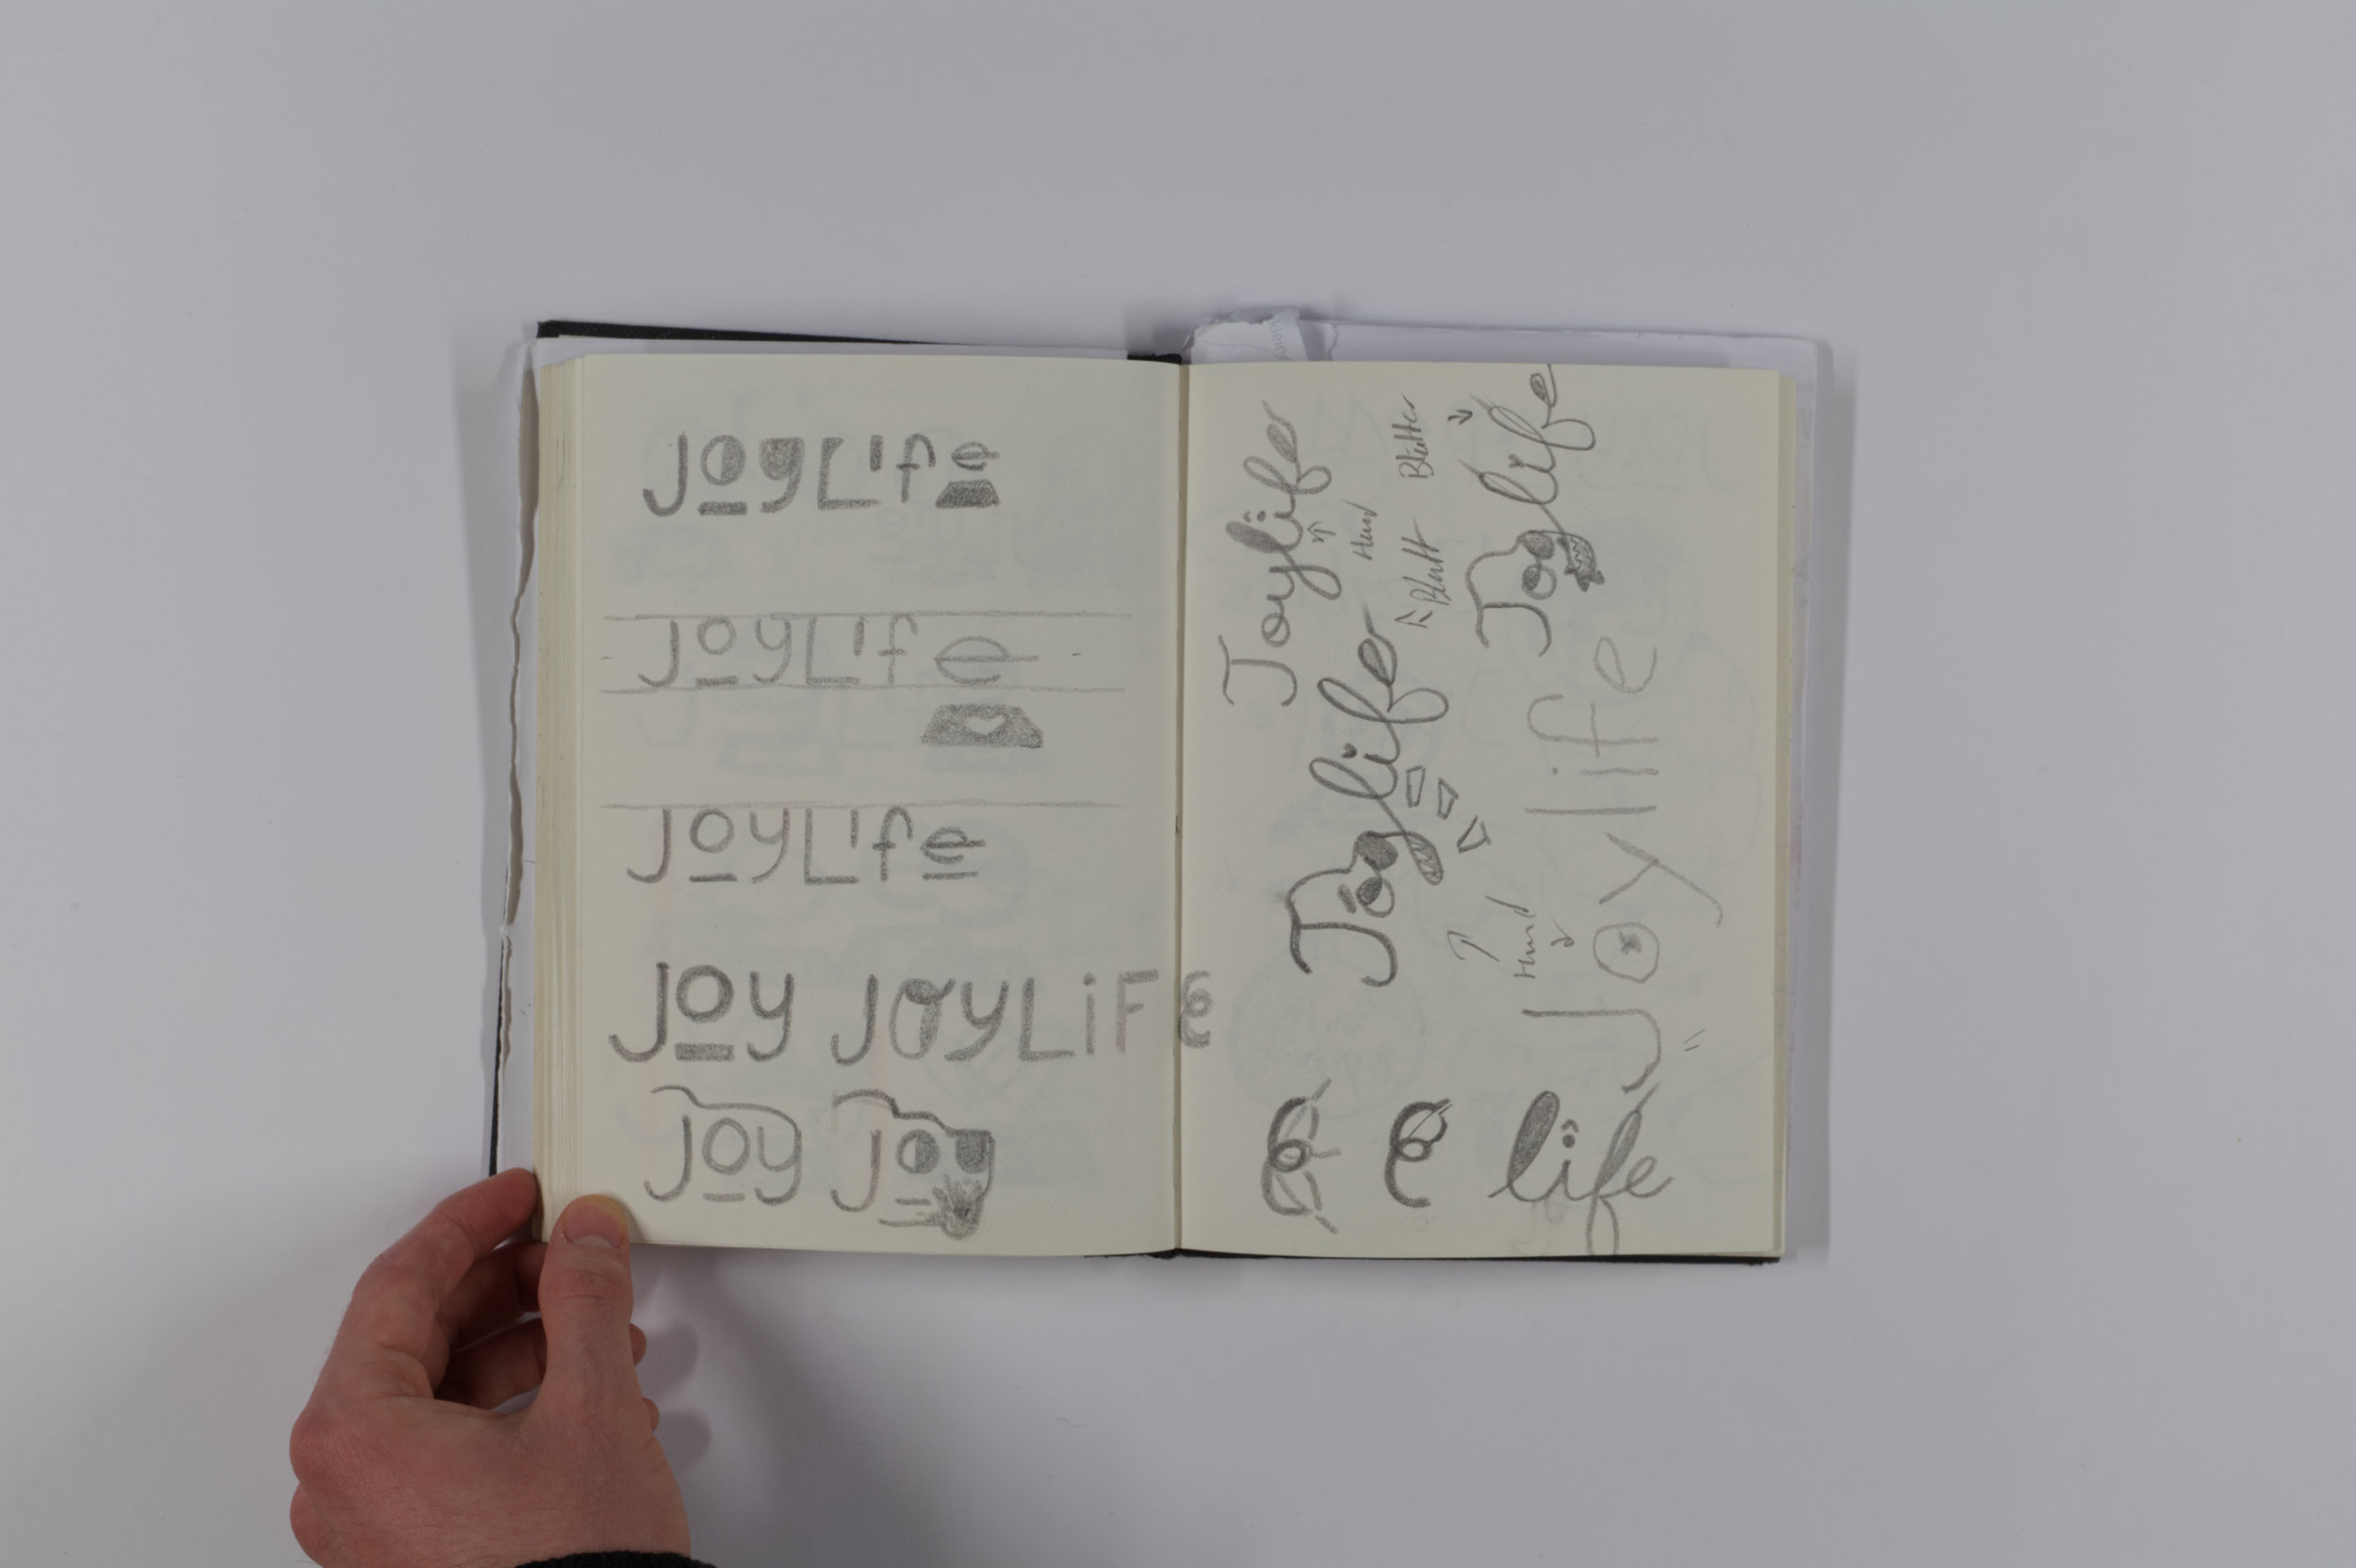 JOYLife
JOYLife
JOYLife
JOY JOYLiFe
JOY JOY
Joylife
Hund
Blätter
Blatt
Joylife
Joylife
Hund
Joylife
e e life